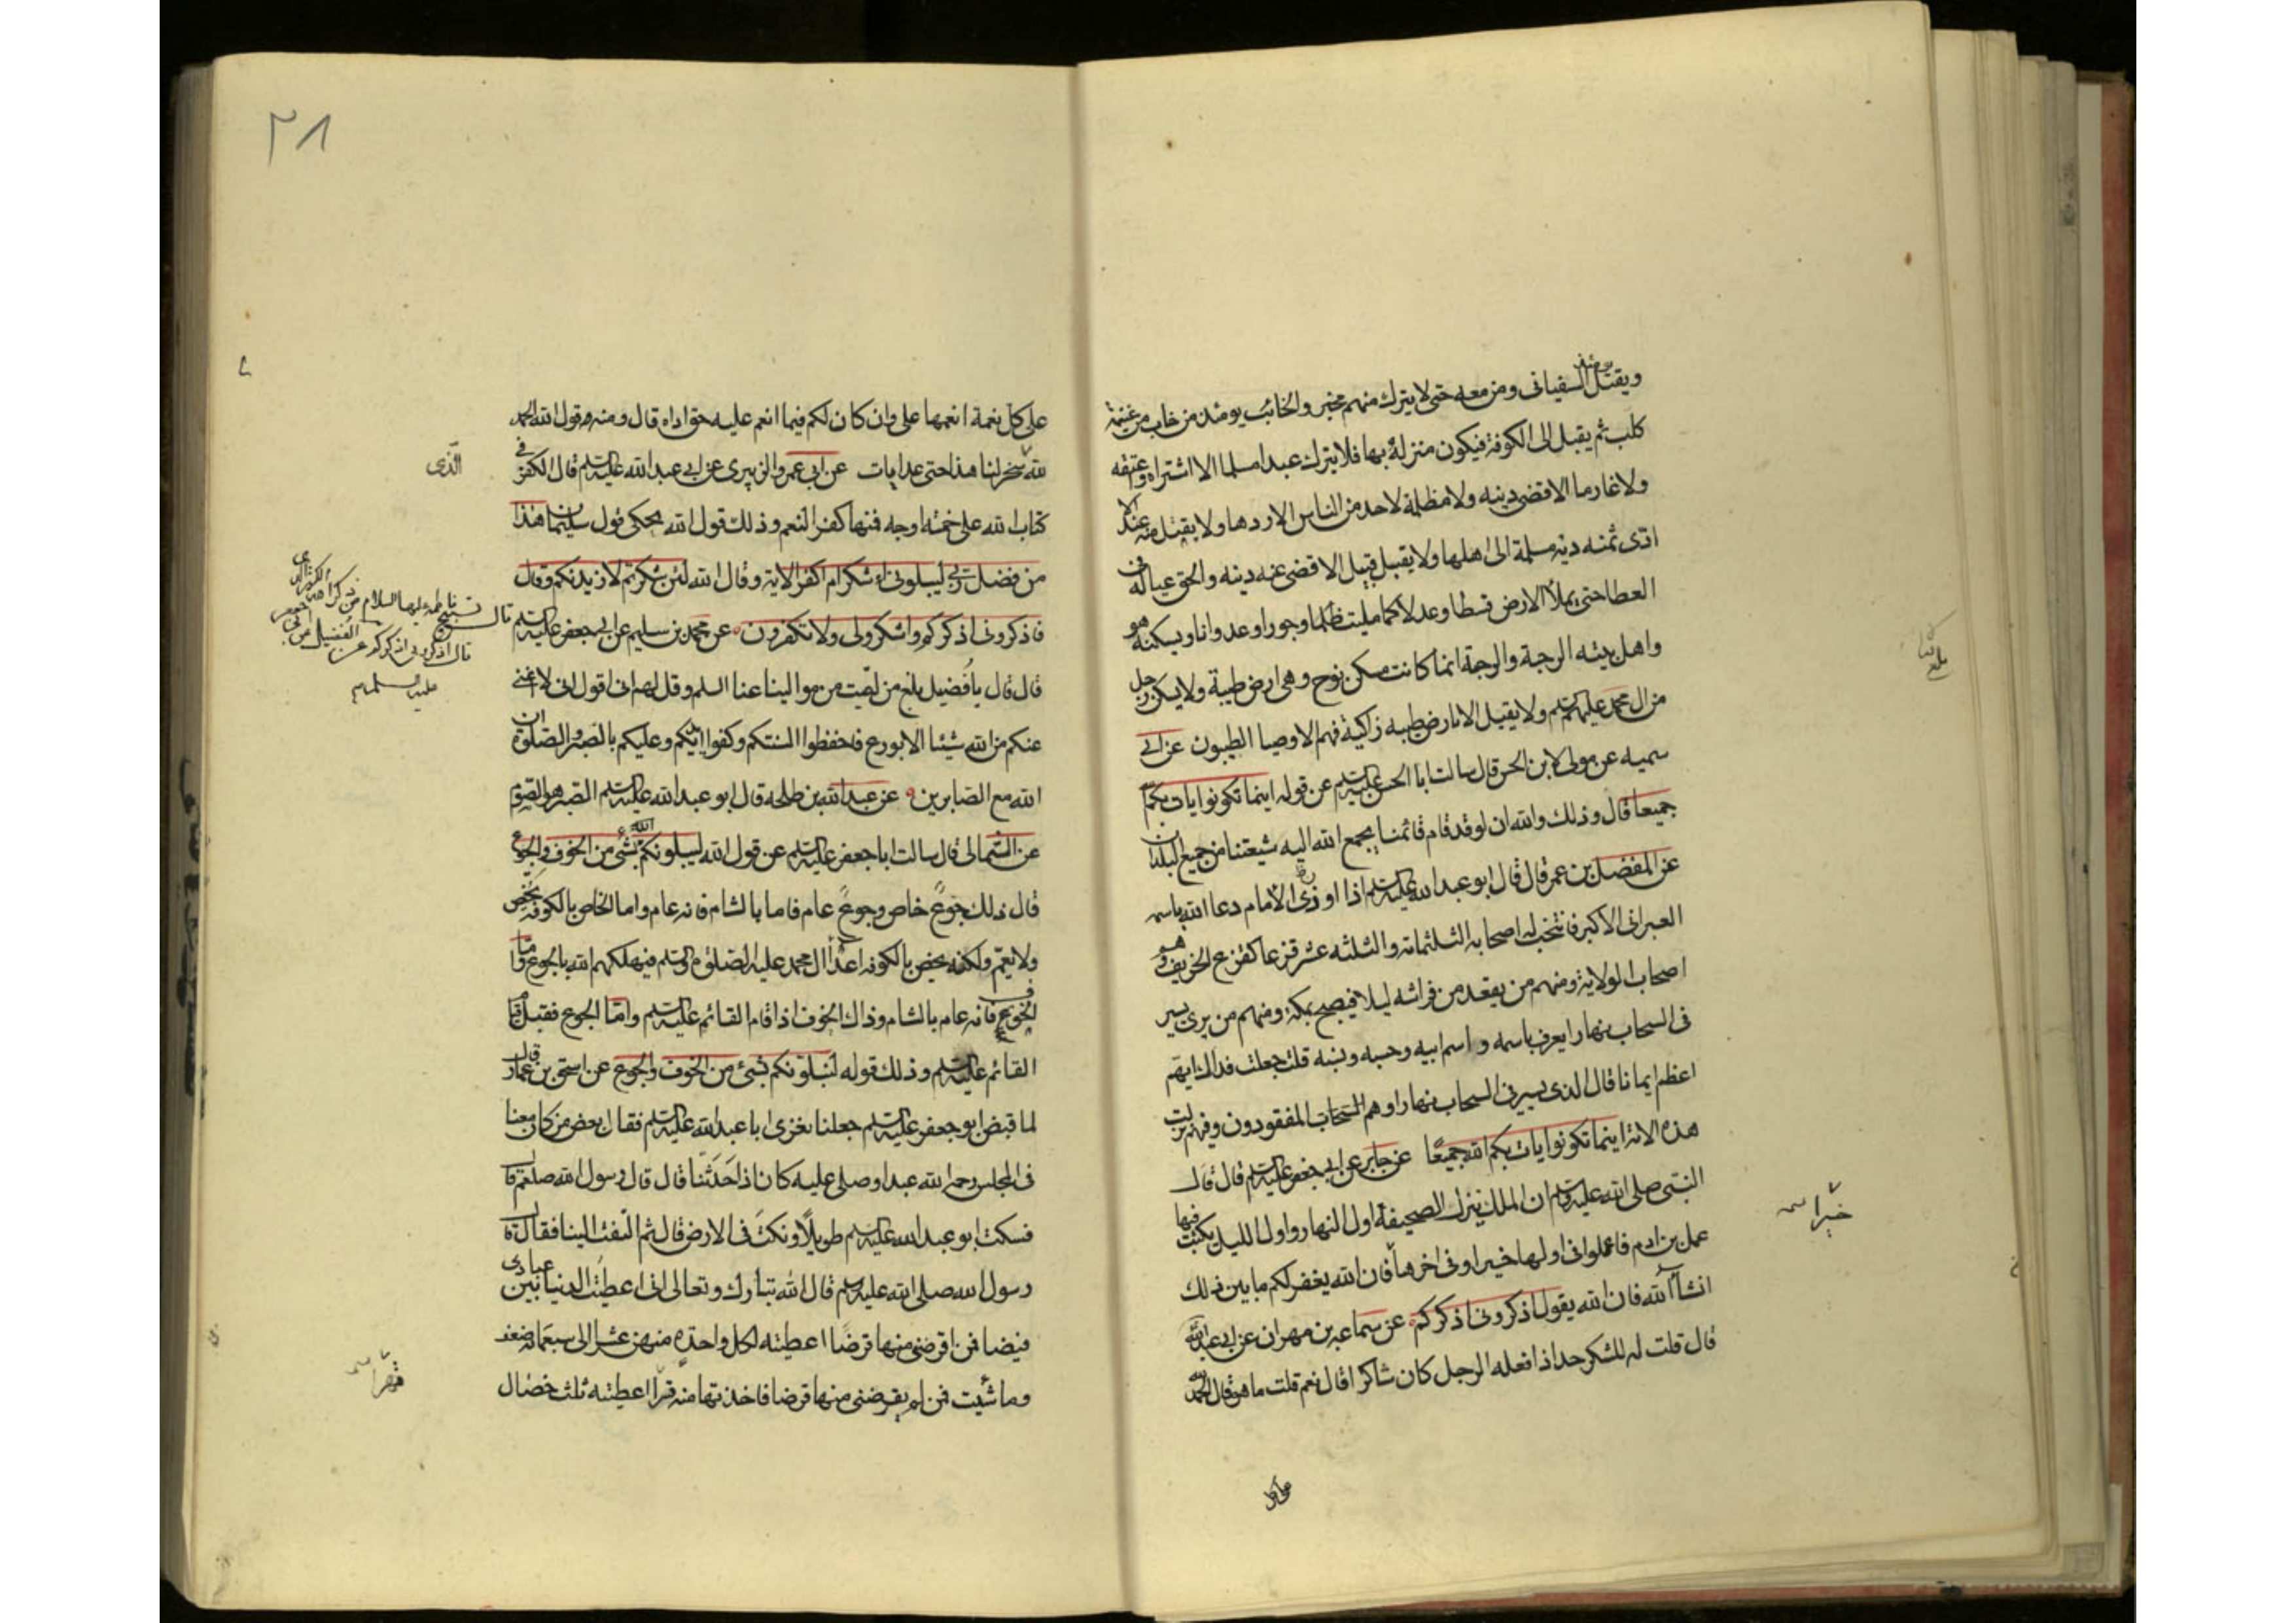 ويقتل السفيانى ومن معه حتى لا يترك منهم مخبر والخائب يومئذ من خاب من غنيمة
كلب ثم يقبل الى الكوفة فيكون منزله بها فلا يترك عبدا مسلما الا اشتراه وعتقه
ولا غارما الا قضى دينه ولا مظلمة لاحد من الناس الا ردها ولا يقتل منه عبد الا
ادى ثمنه دية مسلمة الى اهلها ولا يقبل قتيل الا قضى عنه دينه والحق عياله فى
العطا حتى يملأ الارض قسطا وعدلا كما مليت ظلما وجورا وعدوانا ويسكنه هو
واهل بيته الرحبة والرحبة انما كانت مسكن نوح وهى ارض طيبة ولا يسكن رجل
من ال محمد عليهم السلم ولا يقتل الا بارض طيبه زاكية فهم الاوصيا الطيبون عن ابى
سميه عن مولى لابى الحسن قال سالت ابا الحسن عليه السلم عن قوله اينما تكونوا يات بكم الله
جميعا قال وذلك والله ان لو قد قام قائمنا يجمع الله اليه شيعتنا من جميع البلدان
عن المفضل بن عمر قال قال ابو عبد الله عليه السلم اذا اوذى الامام دعا الله باسمه
العبرانى الاكبر فانتخب له اصحابه الثلثمائه والثلثه عشر قزعا كقزع الخريف وهو
اصحاب الولاية ومنهم من يفقد من فراشه ليلا فيصبح بمكة ومنهم من يرى يسير
فى السحاب نهارا يعرف باسمه واسم ابيه وحسبه ونسبه قلت جعلت فداك ايهم
اعظم ايمانا قال الذى يسير فى السحاب نهارا وهم المفقودون وفيهم نزلت
هذه الاية اينما تكونوا يات بكم الله جميعًا عن جابر عن ابى جعفر عليه السلم قال قال
النبى صلى الله عليه وسلم ان الملك ينزل الصحيفة اول النهار واول الليل يكتب فيها
عمل بن ادم فاعملوا فى اولها خيرا وفى اخرها فان الله يغفر لكم ما بين ذلك
انشاالله فان الله يقول اذكرونى اذكركم عن سماعه بن مهران عن ابى عبدالله
قال قلت له للشكر حد اذا فعله الرجل كان شاكرا قال نعم قلت ما هو قال الحمد لله
على كل
٢٨
على كل نعمة انعمها على وان كان لكم فيما انعم عليه حق اداه قال ومنه قول الله الحمد
لله سخر لنا هذا حتى عد ايات عن ابى عمرو الزبيرى عن ابى عبد الله عليه السلم قال الكفر فى
الذى
كتاب الله على خمسة اوجه فمنها كفر النعم وذلك قول الله يحكى قول سليمان هذا
من فضل ربى ليبلونى ءاشكر ام اكفر الاية وقال الله لئن شكرتم لازيدنكم وقال
فاذكرونى اذكركم واشكروا لى ولا تكفرون عن محمد بن سليم عن ابى جعفر عليه السلم
قال تسبيح فاطمة عليها السلام من ذكر الله الكثير الذى
قال اذكرونى اذكركم عن الفضيل عن ابى جعفر
عليه السلم
قال قال يا فضيل بلغ من لقيت من موالينا عنا السلم وقل لهم انى اقول انى لا اغنى
عنكم من الله شيئا الا بورع فاحفظوا السنتكم وكفوا ايديكم وعليكم بالصبر والصلوة ان
الله مع الصابرين عن عبد الله بن طلحه قال ابو عبد الله عليه السلم الصبر هو الصوم
عن الثمالى قال سالت ابا جعفر عليه السلم عن قول الله ليبلونكم الله بشئ من الخوف والجوع
قال ذلك جوع خاص وجوع عام فاما بالشام فانه عام واما الخاص بالكوفه يخص
ولا يعم ولكنه يخص بالكوفه اعدا ال محمد عليه الصلوة والسلم فيهلكهم الله بالجوع واما
الخوف فانه عام بالشام وذاك الخوف اذا قام القائم عليه السلم واما الجوع فقبل قيام
القائم عليه السلم وذلك قوله لنبلونكم بشئ من الخوف والجوع عن اسحق بن عمار قال
لما قبض ابو جعفر عليه السلم جعلنا نعزى ابا عبد الله عليه السلم فقال بعض من كان معنا
فى المجلس رحم الله عبدا وصلى عليه كان اذا حدثنا قال قال رسول الله صلعم قال
فسكت ابو عبد الله عليه السلم طويلًا ونكت فى الارض قال ثم التفت الينا فقال قال
رسول الله صلى الله عليه وسلم قال الله تبارك وتعالى انى اعطيت الدنيا بين عبادى
فيضا فمن اقرضنى منها قرضًا اعطيته لكل واحدة منهن عشرا الى سبعمائة ضعف
وما شئت فمن لم يقرضنى منها قرضا فاخذتها منه قسرا اعطيته ثلث خصال